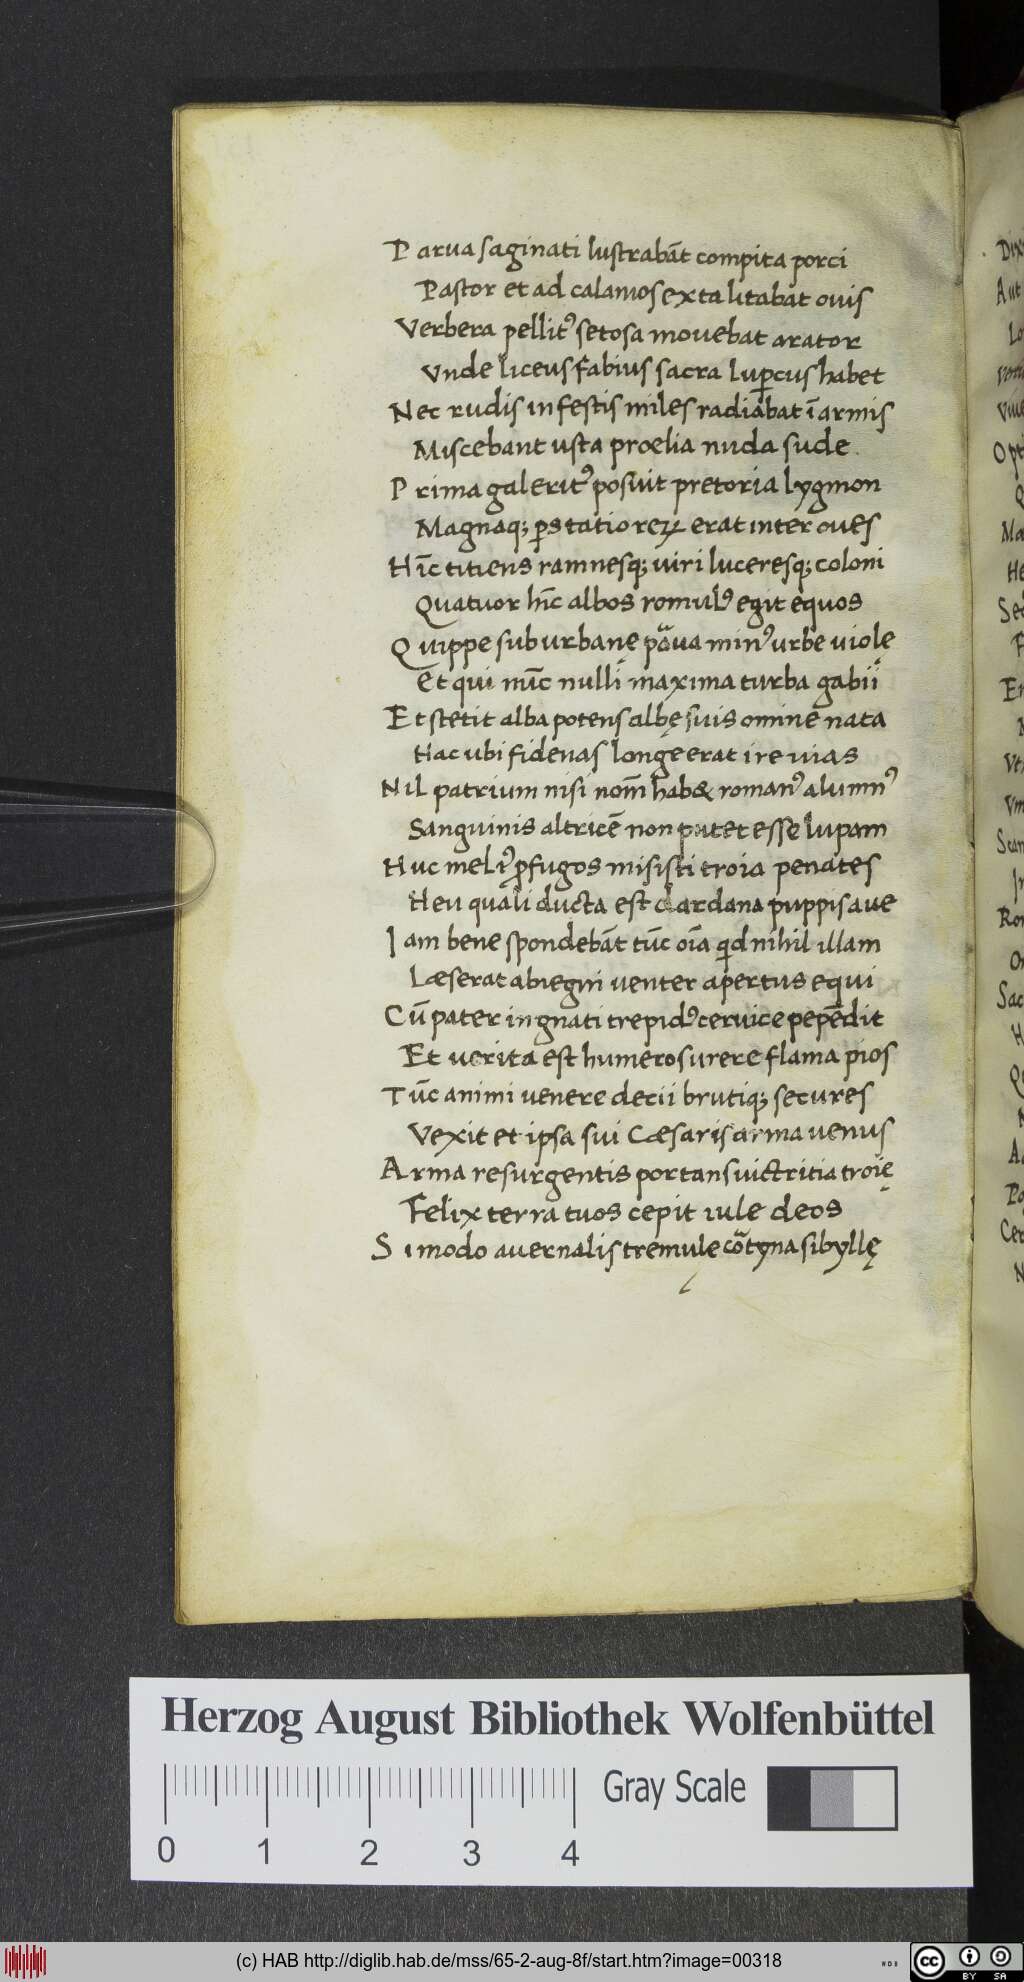 Parua saginati lustrabāt compita porci
Pastor et ad calamos exta litabat ouis
Verbera pellitꝰ setosa mouebat arator
Vnde liceus fabius sacra luꝑcus habet
Nec rudis infestis miles radiabat ī armis
Miscebant usta prœlia nuda sude.
Prima galeritꝰ posuit pretoria lygmon
Magnaqꝫ ꝑs tatio reꝝ erat inter oues
Hīc titiens ramnesqꝫ uiri luceresqꝫ coloni
Quatuor hīc albos romulꝰ egit equos
Quippe suburbanę paͣua minꝰ urbe uiole
Et qui nūc nulli maxima turba gabii
Et stetit alba potens albę suis omine nata
Hac ubi fidenas longe erat ire uias
Nil patrium nisi nom̄ hab& romanꝰ alumnꝰ
Sanguinis altricē non putet esse lupam
Huc meliꝰ ꝓfugos misisti troia penates
Heu quali ducta est dardana puppis aue
Iam bene spondebāt tūc oīa qd nihil illam
Læserat abiegni uenter apertus equi
Cū pater in gnati trepidꝰ ceruice pepēdit
Et uerita est humeros urere flama pios
Tūc animi uenere decii brutiqꝫ secures
Vexit et ipsa sui Cæsaris arma uenus
Arma resurgentis portans uictritia troię
Felix terra tuos cepit iule deos
Si modo auernalis tremule cōtyna sibyllę
Dix
Aut
Lo
Vme
Opt
Q
Ma
He
Sed
F
Er
N
Vti
Vm
Scan
In
Ror
O
Sac
H
Q
N
A
Po
Cer
N
Herzog August Bibliothek Wolfenbüttel
Gray Scale
0 1 2 3 4
(c) HAB http://diglib.hab.de/mss/65-2-aug-8f/start.htm?image=00318
WDB
cc BY SA